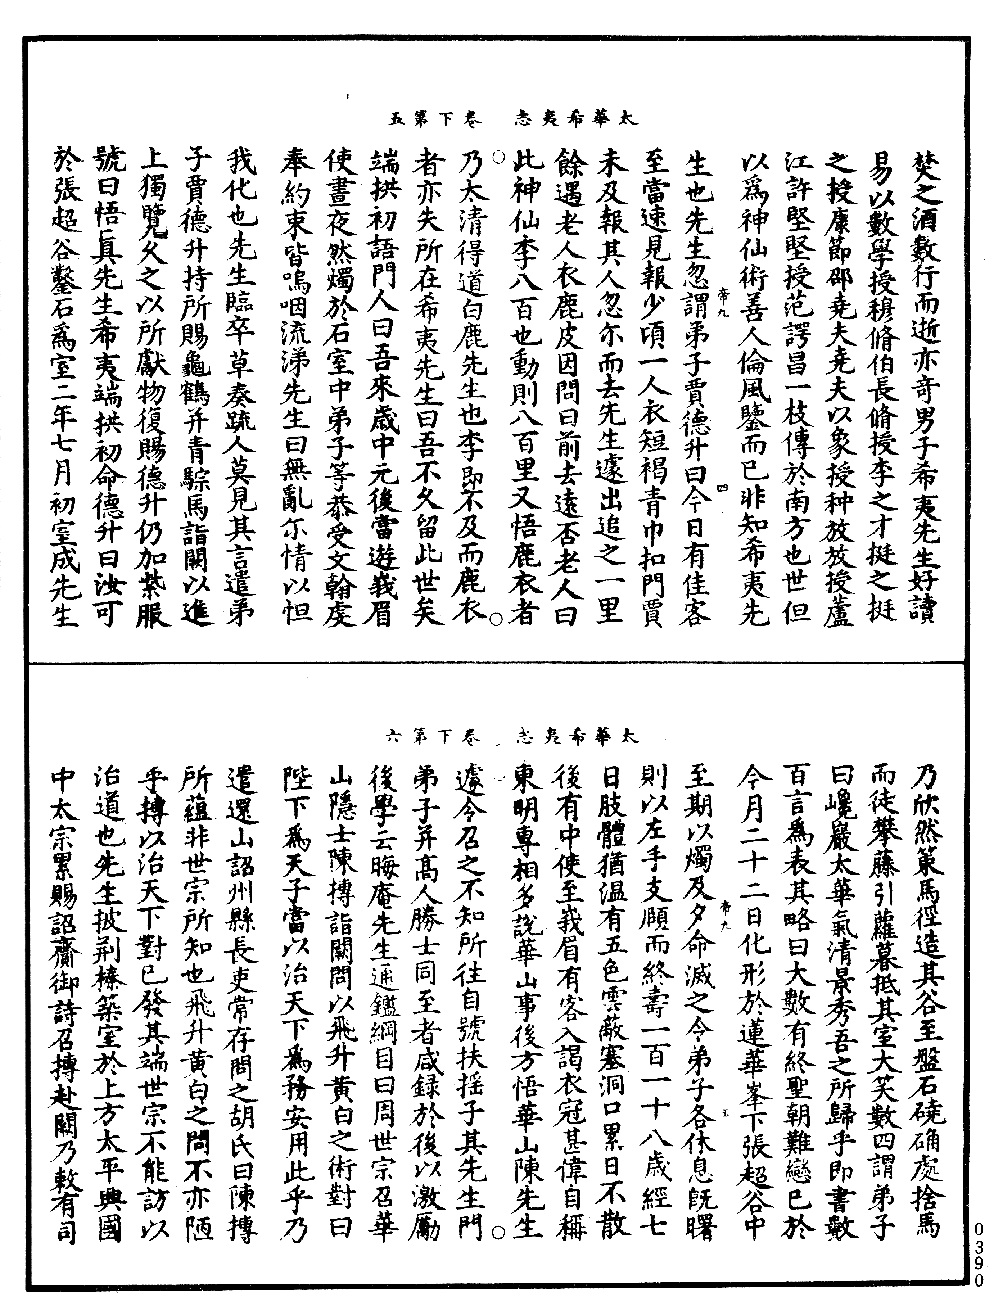 太華希夷志　卷下第五
焚之酒數行而逝亦奇男子希夷先生好讀
易以數學授穆脩伯長脩授李之才挺之挺
之授康節邵堯夫堯夫以象授种放放授蘆
江許堅堅授范諤昌一枝傳於南方也世但
以爲神仙術善人倫風鑒而已非知希夷先
生也先生忽謂弟子賈德升曰今日有佳客
至當速見報少頃一人衣短褐青巾扣門賈
未及報其人忽尓而去先生遽出追之一里
餘遇老人衣鹿皮因問曰前去遠否老人曰
此神仙李八百也動則八百里又悟鹿衣者
乃太清得道白鹿先生也李即不及而鹿衣
者亦失所在希夷先生曰吾不久留此世矣
端拱初語門人曰吾來歲中元後當遊峩眉
使晝夜然燭於石室中弟子等恭受文翰處
奉約束皆嗚咽流涕先生曰無亂尓情以怛
我化也先生臨卒草奏䟽人莫見其言遣弟
子賈德升持所賜龜鶴并青騌馬詣闕以進
上獨覽久之以所獻物復賜德升仍加紫服
號曰悟真先生希夷端拱初命德升曰汝可
於張超谷鑿石爲室二年七月初室成先生
帝九
四
太華希夷志　卷下第六
乃欣然策馬徑造其谷至盤石磽确處捨馬
而徒攀藤引蘿暮抵其室大笑數四謂弟子
曰巉巖太華氣清景秀吾之所歸乎即書數
百言爲表其略曰大數有終聖朝難戀已於
今月二十二日化形於蓮華峯下張超谷中
至期以燭及夕命滅之令弟子各休息旣曙
則以左手支頤而終壽一百一十八歲經七
日肢體猶温有五色雲蔽塞洞口累日不散
後有中使至峩眉有客入謁衣冠甚偉自稱
東明專相多說華山事後方悟華山陳先生
遽令召之不知所往自號扶搖子其先生門
弟子并髙人勝士同至者咸録於後以激勵
後學云晦庵先生通鑑綱目曰周世宗召華
山隱士陳摶詣闕問以飛升黄白之術對曰
陛下爲天子當以治天下爲務安用此乎乃
遣還山詔州縣長吏常存問之胡氏曰陳摶
所蘊非世宗所知也飛升黄白之問不亦陋
乎摶以治天下對已發其端世宗不能訪以
治道也先生披荆榛築室於上方太平興國
中太宗累賜詔齎御詩召摶赴闕乃敕有司
帝九
五
0390